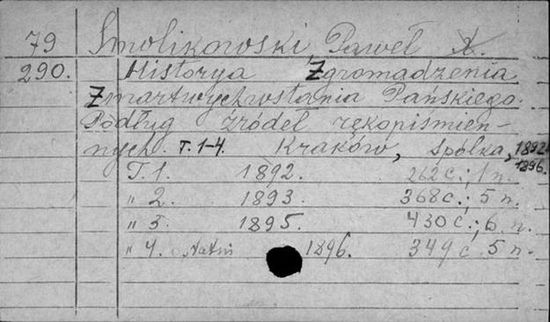 79 Smolikowski, Paweł X.
290. Historya Zgromadzenia
Zmartwychwstania Pańskiego.
Podług źródeł rękopismien-
nych. T. 1-4. Kraków, Spółka, 1892-
1896.
T. 1. 1892. 262 c.; 1 п.
" 2. 1893. 368 c.; 5 п.
" 3. 1895. 430 c.; 6 п.
" 4. ostatni 1896. 349 c. 5 п.